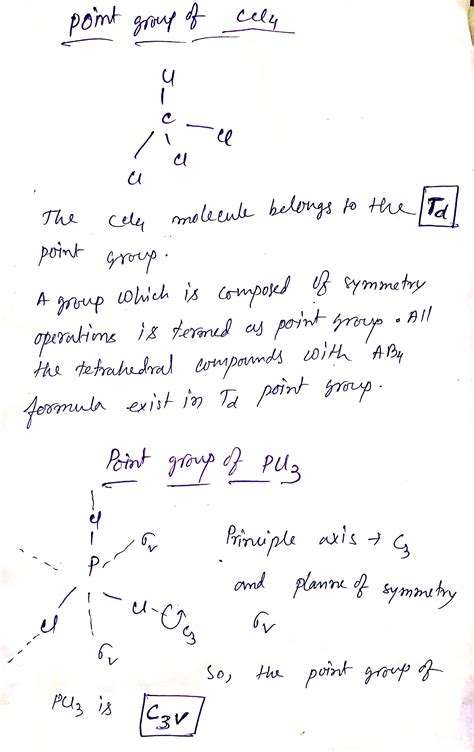 Point group of CCl4
Cl
C
Cl
Cl
Cl
The CCl4 molecule belongs to the Td
point group.
A group which is composed of symmetry
operations is termed as point group. All
the tetrahedral compounds with AB4
formula exist in Td point group.
Point group of PCl3
Cl
σv
P
Cl
Cl
C3
σv
Principle axis → C3
and planne of symmetry
σv
So, the point group of
PCl3 is C3V